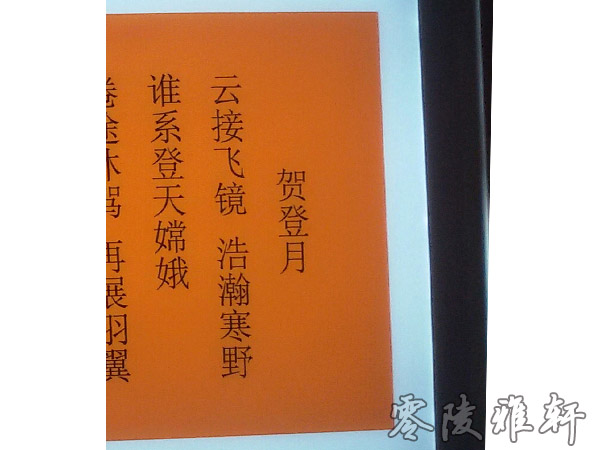 贺登月
云接飞镜 浩瀚寒野
谁系登天嫦娥
倦途休驾 再展羽翼
零陵雅轩